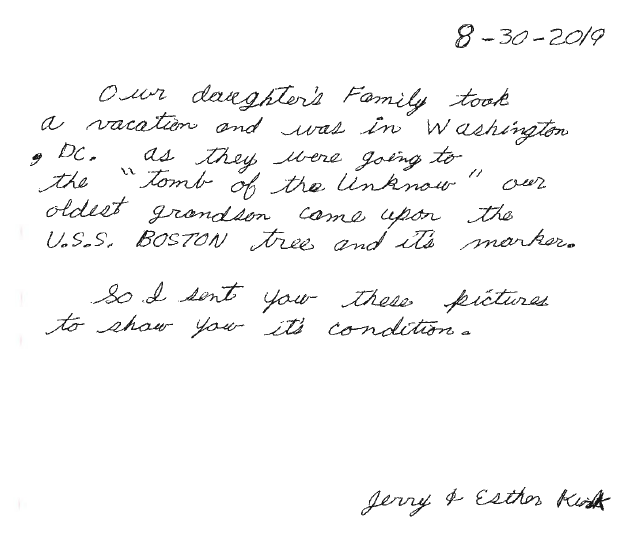 8-30-2019
Our daughter's Family took
a vacation and was in Washington
, DC. as they were going to
the "tomb of the Unknow" our
oldest grandson came upon the
U.S.S. BOSTON tree and it's marker.
So I sent you these pictures
to show you it's condition.
Jerry & Esther